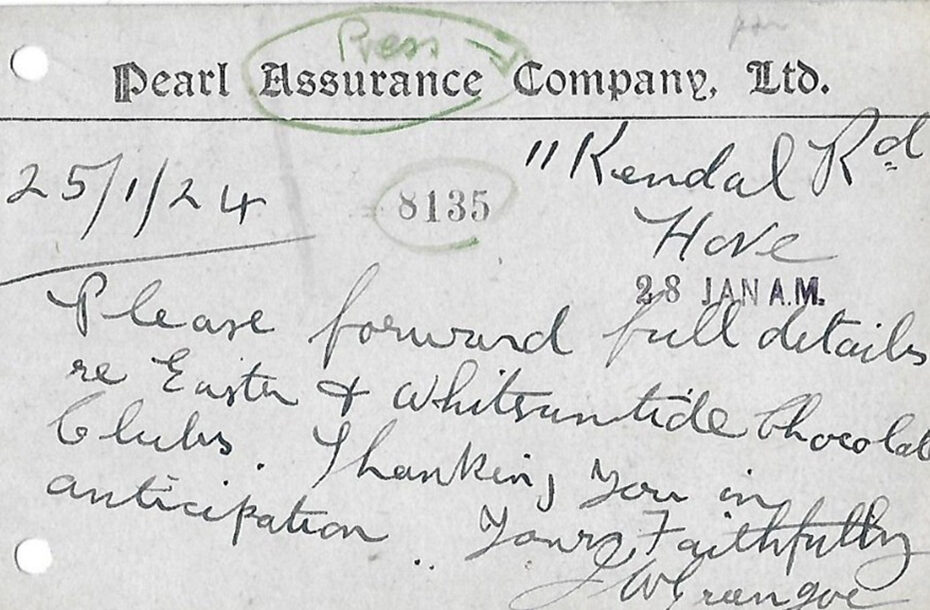 Press
Pearl Assurance Company, Ltd.
11 Kendal Rd
25/1/24
8135
Hove
28 JAN A.M.
Please forward full details
re Easter & Whitsuntide Chocolate
Clubs. Thanking you in
anticipation.. Yours Faithfully
J W